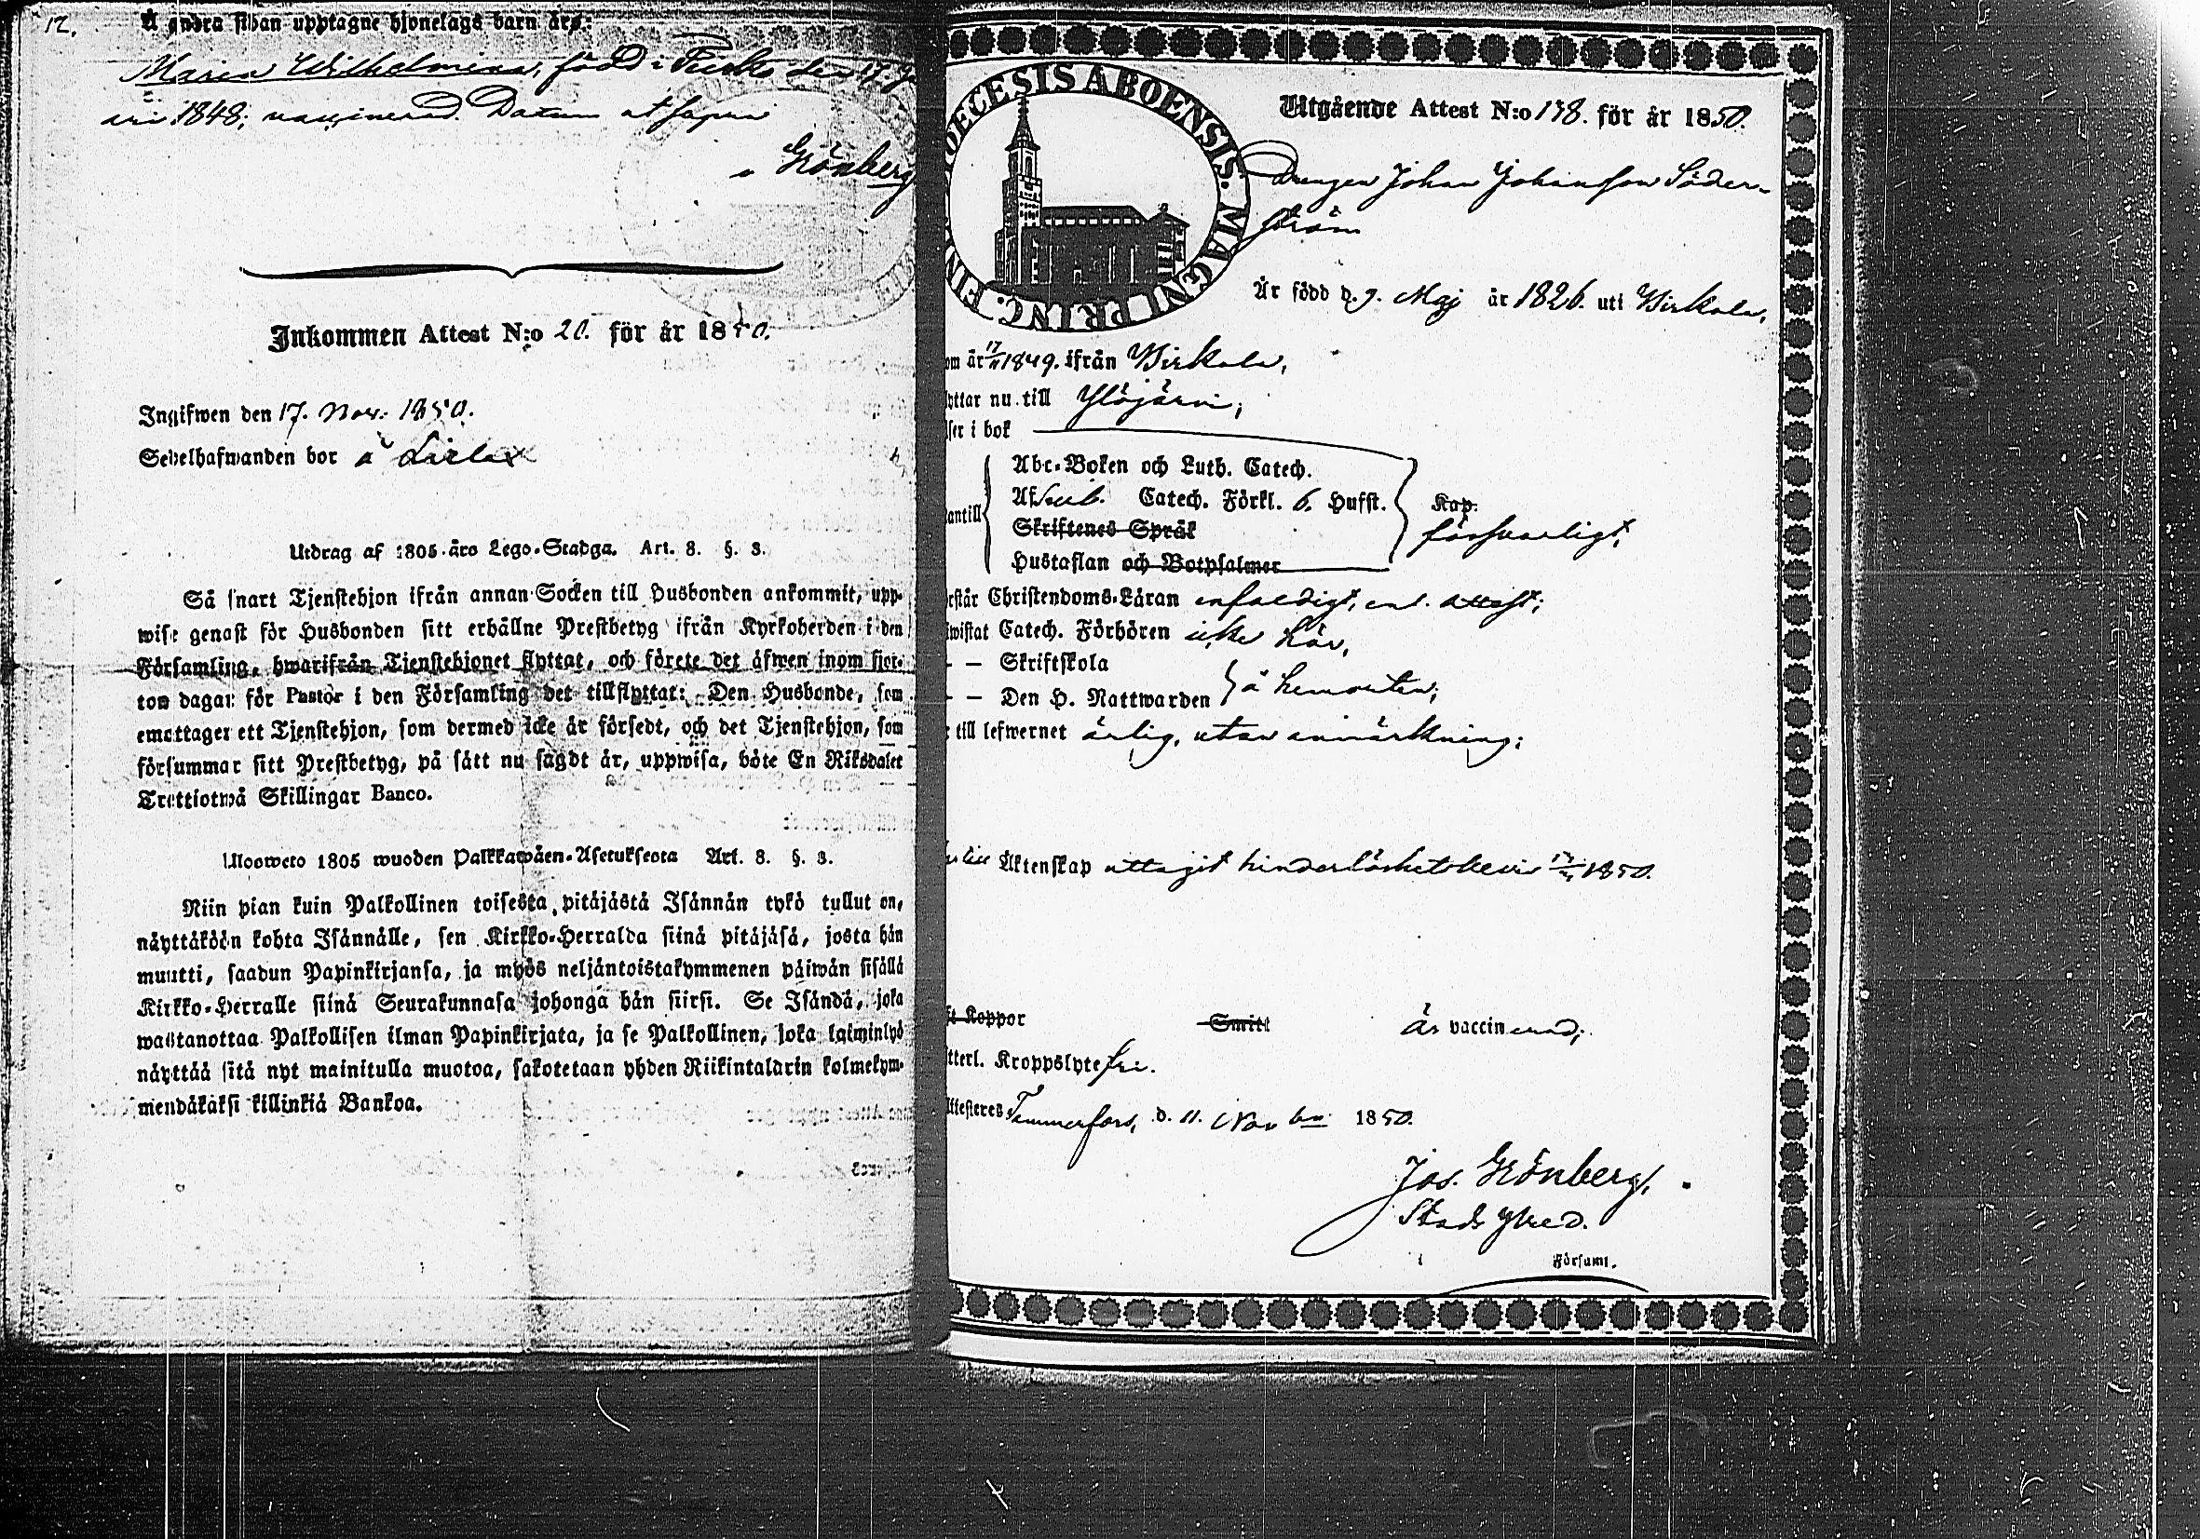 12.
Å andra sidan upptagne hjonelags barn äro:
Maria Wilhelmina, född i den 17
1848; vaccinerad. Datum ut supra
Grönberg
Inkommen Attest N:o 20. för år 1850.
Ingifwen den 17. Nov. 1850.
Sedelhafwanden bor å
Utdrag af 1805 års Lego-Stadga. Art. 8. §. 3.
Så snart Tjenstehjon ifrån annan Socken till Husbonden ankommit, upp-
wise genast för Husbonden sitt erhållne Prestbetyg ifrån Kyrkoherden i den
Församling, hwarifrån Tjenstehjonet flyttat, och förete det äfwen inom fjor-
ton dagar för Pastor i den Församling det tillflyttat: Den Husbonde, som
emottager ett Tjenstehjon, som dermed icke är försedt, och det Tjenstehjon, som
försummar sitt Prestbetyg, på sätt nu sagdt är, uppwisa, böte En Riksdaler
Trettiotwå Skillingar Banco.
Uloosweto 1805 wuoden Palkkawäen-Asetuksesta Art. 8. §. 3.
Niin pian kuin Palkollinen toisesta pitäjästä Isännän tykö tullut on,
näyttäköön kohta Isännälle, sen Kirkko-Herralda siinä pitäjäsä, josta hän
muutti, saadun Papinkirjansa, ja myös neljäntoistakymmenen päiwän sisällä
Kirkko-Herralle siinä Seurakunnasa johonga hän siirsi. Se Isändä, joka
wastanottaa Palkollisen ilman Papinkirjata, ja se Palkollinen, joka laiminlyö
näyttää sitä nyt mainitulla muotoa, sakotetaan yhden Riikintaldrin kolmekym-
mendäkaksi killinkiä Bankoa.
DIOECESIS ABOENSIS. MAGNI PRINC. FIN
Utgående Attest N:o 138. för år 1850.
Drengen Johan Johansson Söder-
ström
Är född d. 9. Maj år 1826. uti Birkala,
om år 17/11 1849. ifrån Birkala,
yttar nu till Ylöjärvi;
ser i bok
Abc-Boken och Luth. Catech.
Af Sveb. Catech. Förkl. 6. Hufst.
antill
Kap.
Skriftenes Språk
försvarligt,
Hustaflan och Botpsalmer
rstår Christendoms-Läran enfaldigt, enl. attest;
wistat Catech. Förhören icke här,
— — Skriftskola
— — Den H. Nattwarden å hemorten;
till lefwernet ärlig, utan anmärkning;
Äktenskap uttagit hinderlöshetsbevis 1850.
t Koppor Smitt Är vaccinerad;
tterl. Kroppslyte fri.
ttesteres Tammerfors, d. 11. Novbr 1850.
Jos. Grönberg,
i Församl.